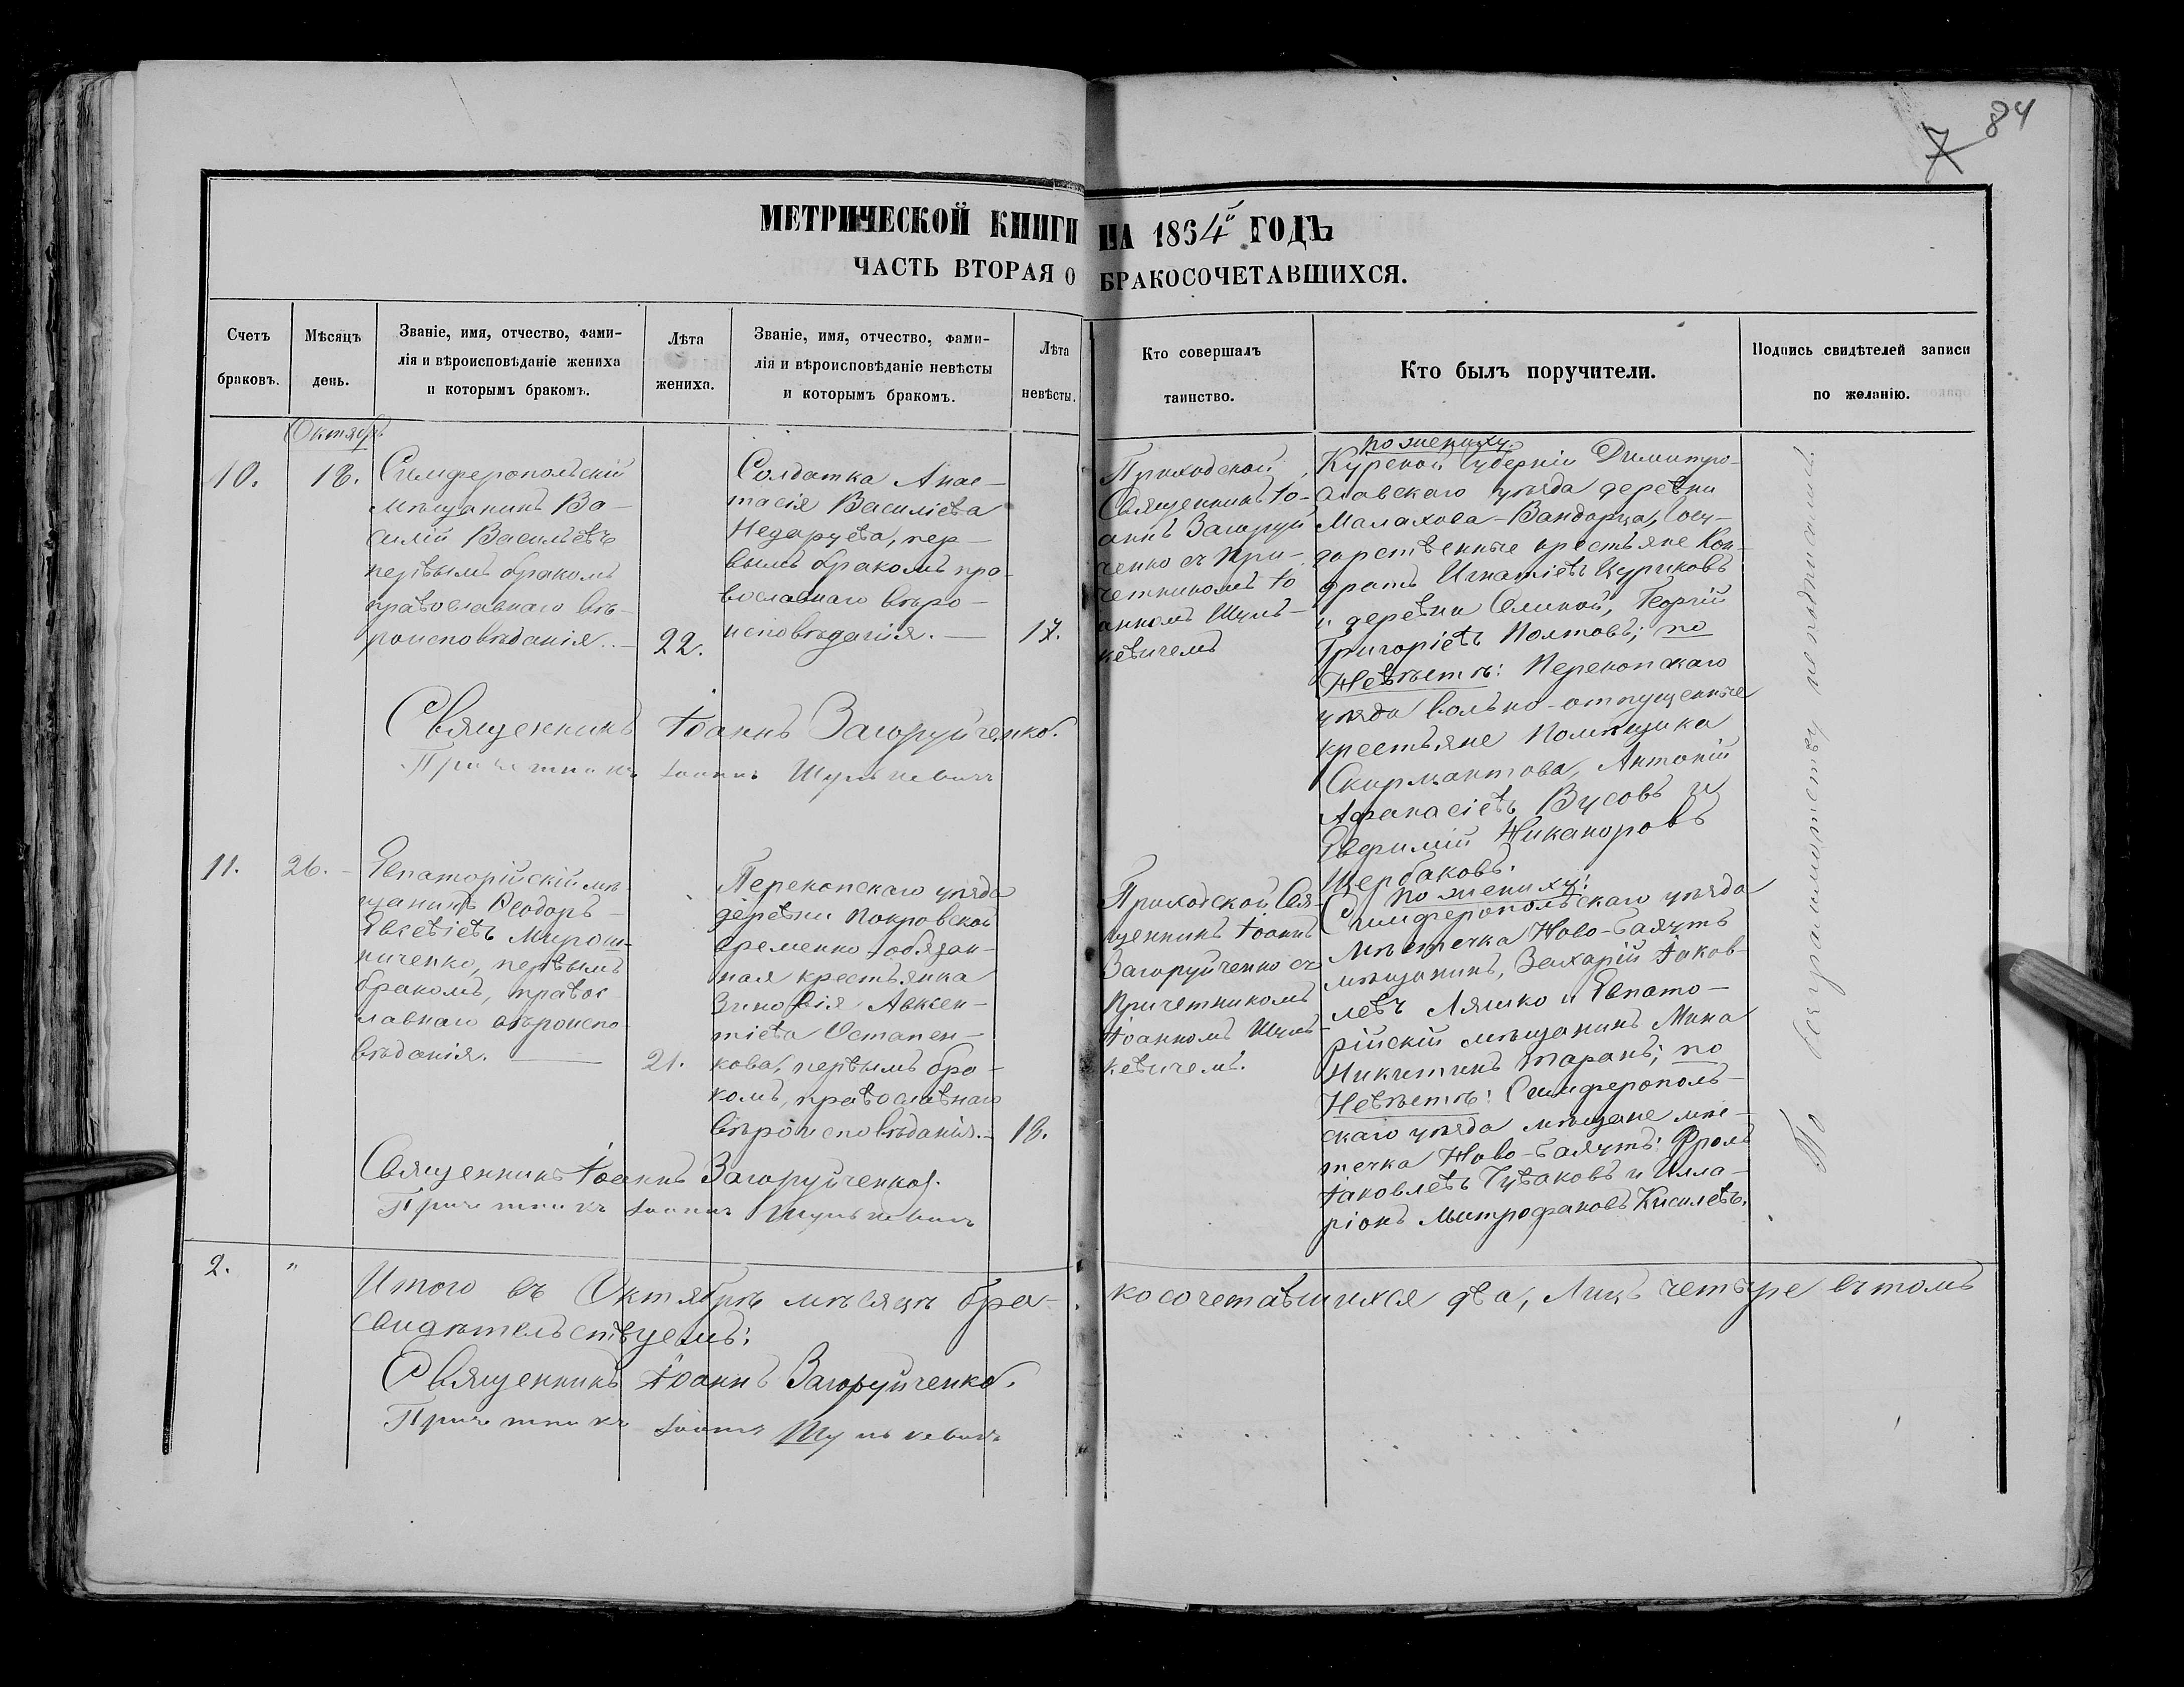 84
7
МЕТРИЧЕСКОЙ КНИГИ НА 1864й ГОДЪ
ЧАСТЬ ВТОРАЯ О БРАКОСОЧЕТАВШИХСЯ.
Счетъ
браковъ.
Мѣсяцъ
день.
Званіе, имя, отчество, фами-
лія и вѣроисповѣданіе жениха
и которымъ бракомъ.
Лѣта
жениха.
Званіе, имя, отчество, фами-
лія и вѣроисповѣданіе невѣсты
и которымъ бракомъ.
Лѣта
невѣсты.
Кто совершалъ
таинство.
Кто былъ поручители.
Подпись свидѣтелей записи
по желанію.
Октябрь
10.
18.
Симферопольскій
мѣщанинъ Ва-
силій Васильевъ
первымъ бракомъ
православнаго вѣ-
роисповѣданія..-
22.
Солдатка Анас-
тасія Василіева
пер-
вымъ бракомъ пра-
вославнаго вѣро-
исповѣданія. —
17.
Приходской
Священникъ Іо-
аннъ Загоруй
ченко съ При-
четникомъ Іо
анномъ Шуль-
кевичемъ
по жениху:
Курской Губерніи Димитро-
славскаго уѣзда деревни
Малахова-
дарственные крестьяне Кон-
дратъ Игнатіевъ Цуриковъ
и деревни Георгій
Григоріевъ Полтовъ; по
Невѣстѣ: Перекопскаго
уѣзда вольно-отпущенные
крестьяне Помѣщика
Антоній
Афанасіевъ Вусовъ и
Евфимій Никаноровъ
Щербаковъ.
Священникъ Іоаннъ Загоруйченко.
Причетникъ Іоаннъ Шулькевичъ
11.
26.-
Евпаторійскій мѣ-
щанинъ Ѳеодоръ
Евсевіевъ Мирош-
ниченко, первымъ
бракомъ, правос-
лавнаго вѣроиспо-
вѣданія. —
21.
Перекопскаго уѣзда
деревни Покровской
временно-обязан-
ная крестьянка
Зиновія Авксен-
тіева Остапен-
кова, первымъ бра-
комъ, православнаго
вѣроисповѣданія.-
18.
Приходской Свя-
щенникъ Іоаннъ
Загоруйченко съ
Причетникомъ
Іоанномъ Шуль-
кевичемъ.
По жениху:
Симферопольскаго уѣзда
Мѣстечка Ново-
мѣщанинъ, Захарій Іаков-
левъ Ляшко и Евпато-
рійскій мѣщанинъ Мина
Никитинъ Таранъ; по
Невѣстѣ: Симферополь-
скаго уѣзда мѣщане мѣс-
течка Ново- Фролъ
Іаковлевъ и Илла-
ріонъ Митрофановъ Киселевъ.
По безграмотству не подписали.
Священникъ Іоаннъ Загоруйченко.
Причетникъ Іоаннъ Шулькевичъ
2.
"
Итого въ Октябрѣ мѣсяцѣ бра- косочетавшихся два, Лицъ четыре въ томъ
свидѣтельствуемъ:
Священникъ Іоаннъ Загоруйченко.
Причетникъ Іоаннъ Шулькевичъ